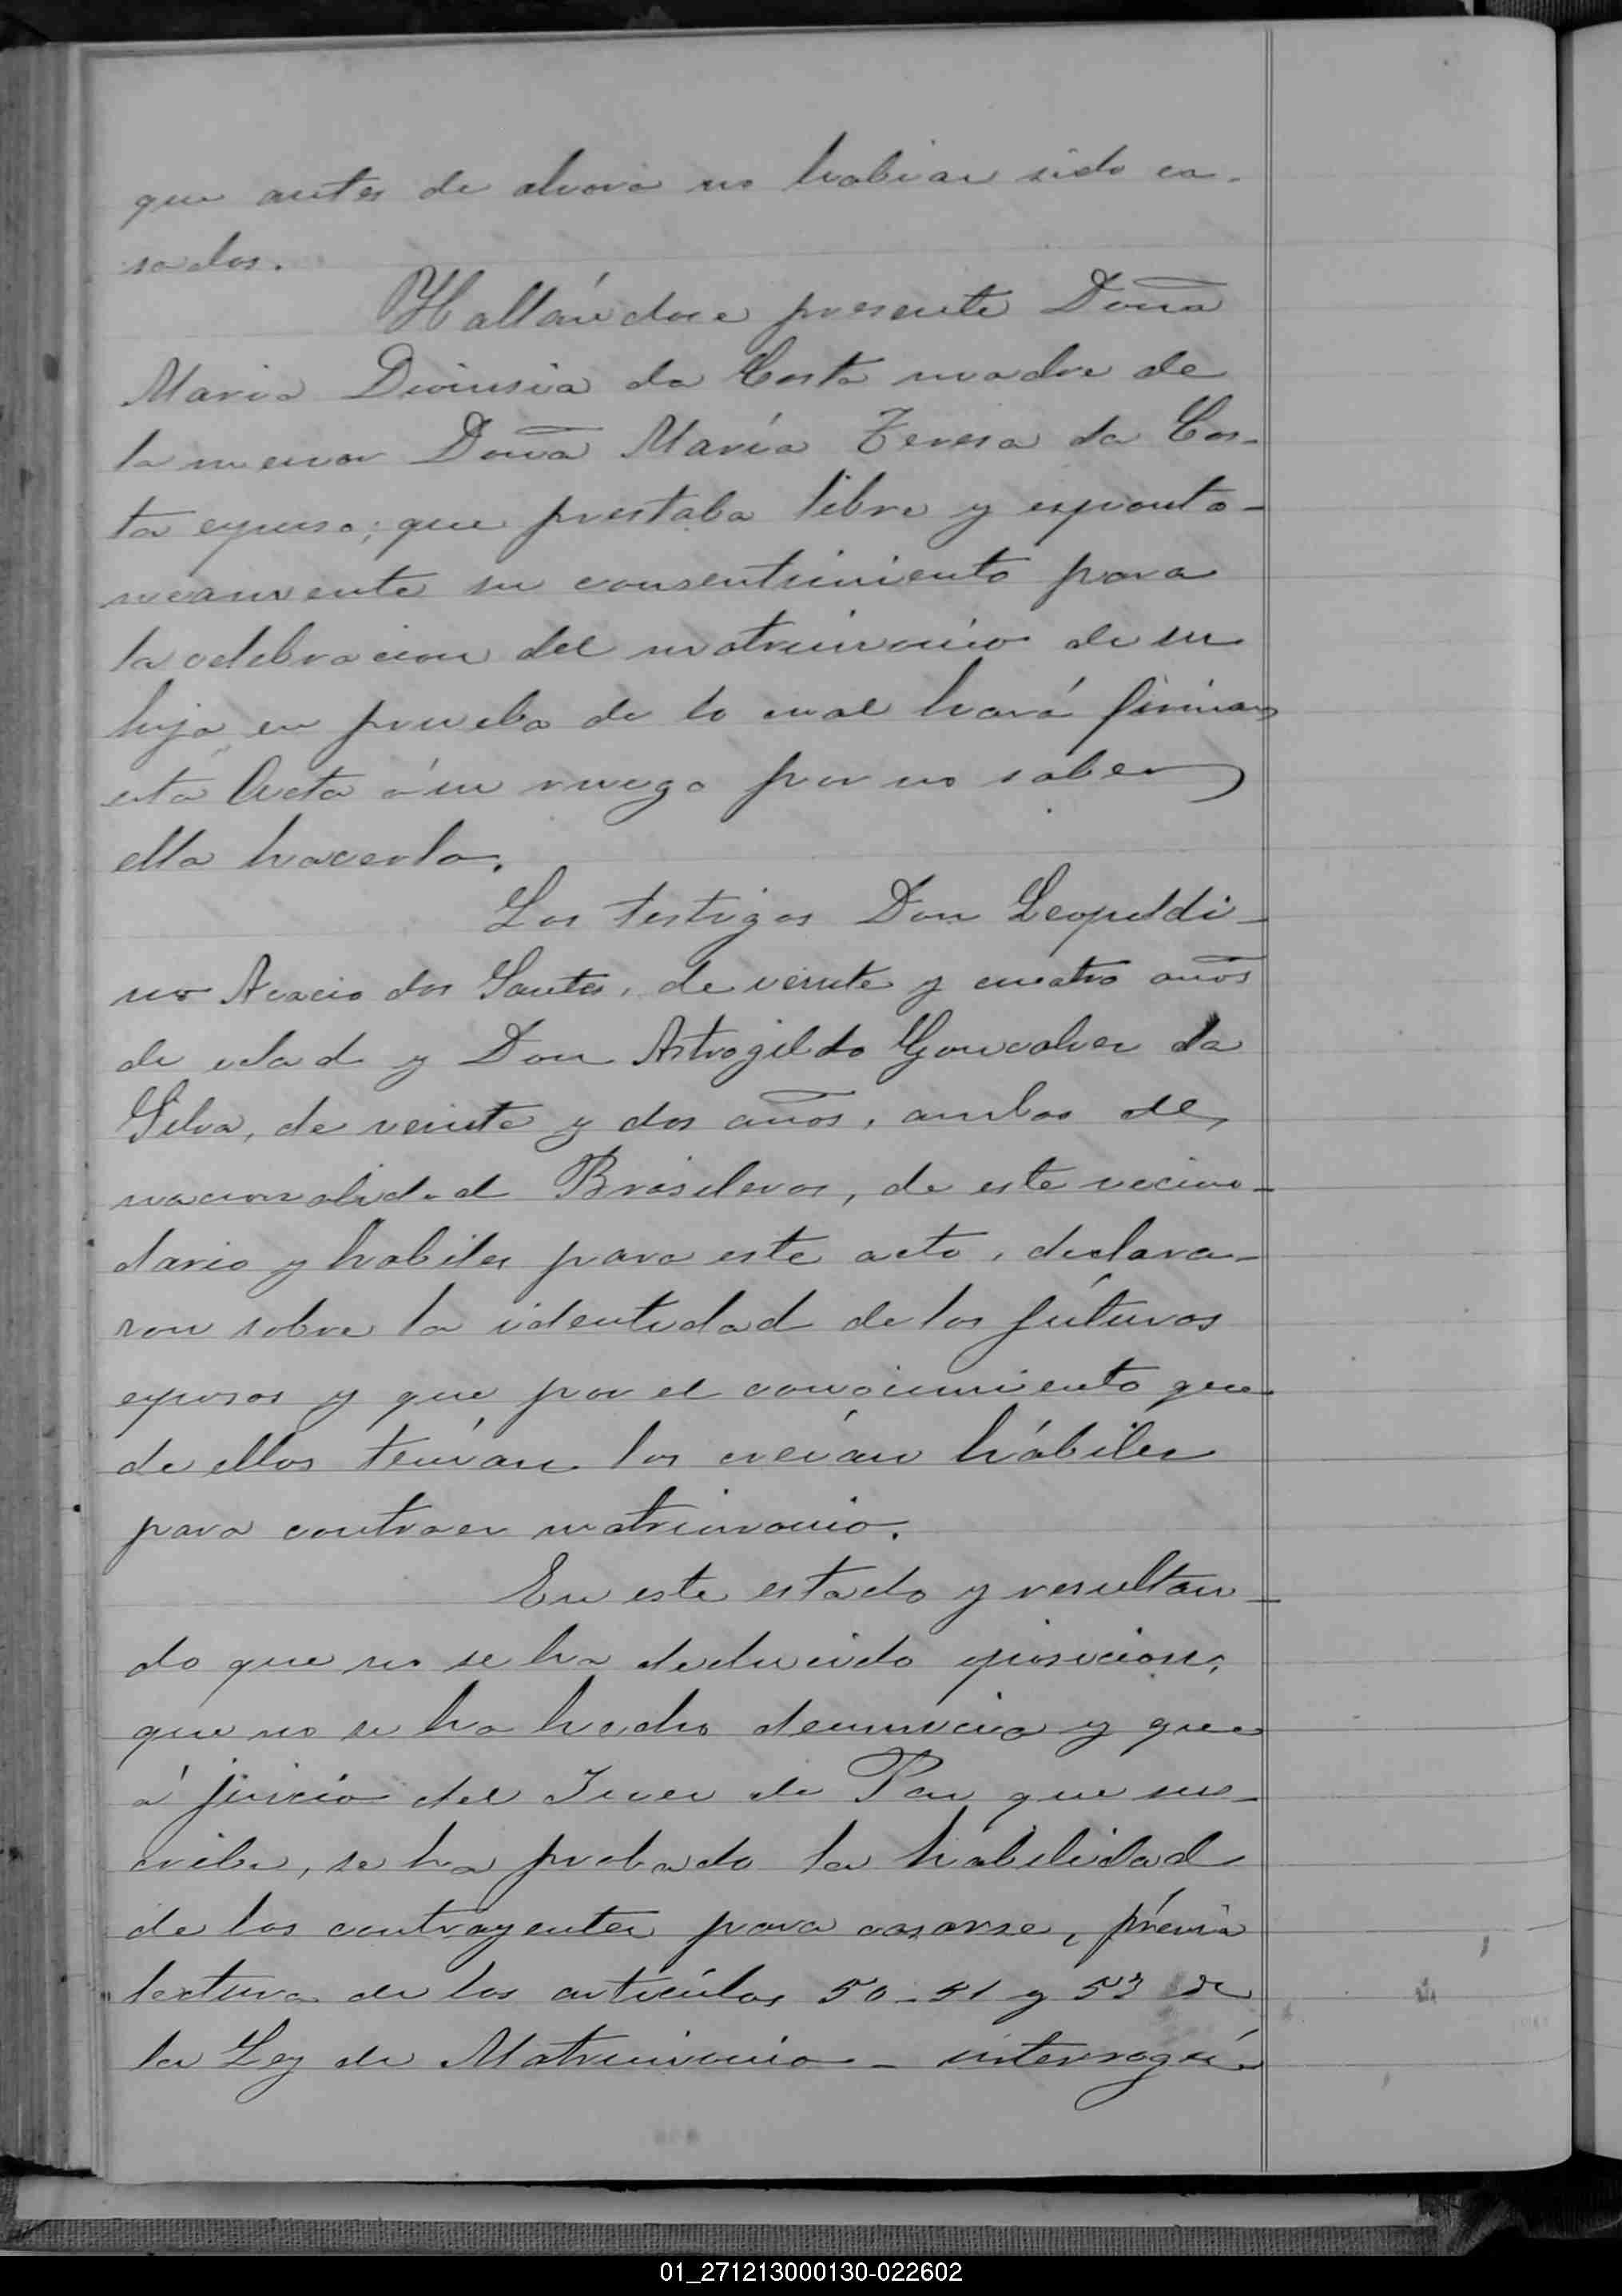 que antes de ahora no habian sido ca-
sados.
Hallándose presente Doña
Maria Dionisia da Costa madre de
la menor Doña María Teresa da Cos-
ta expuso; que prestaba libre y esponta-
neamente su consentimiento para
la celebracion del matrimonio de su
hija en prueba de lo cual hará firmar
esta Acta á su ruego por no saber
ella hacerlo.
Los testigos Don Leopoldi-
no Acacio dos Santos, de veinte y cuatro años
de edad y Don Astrogildo Goncalves da
Silva, de veinte y dos años, ambos de
nacionalidad Brasileros, de este vecin-
dario y habiles para este acto, declara-
ron sobre la identidad de los fúturos
esposos y que por el conocimiento que
de ellos tenían los creían hábiles
para contraer matrimonio.
En este estado y resultan-
do que no se ha deducido oposicion,
que no se ha hecho denuncia y que
á juicio del Juez de Paz que sus-
cribe, se ha probado la habilidad
de los contrayentes para casarse, prévia
lectura de los artículos 50-51 y 53 de
la Ley de Matrimonio - interrogué
01_271213000130-022602